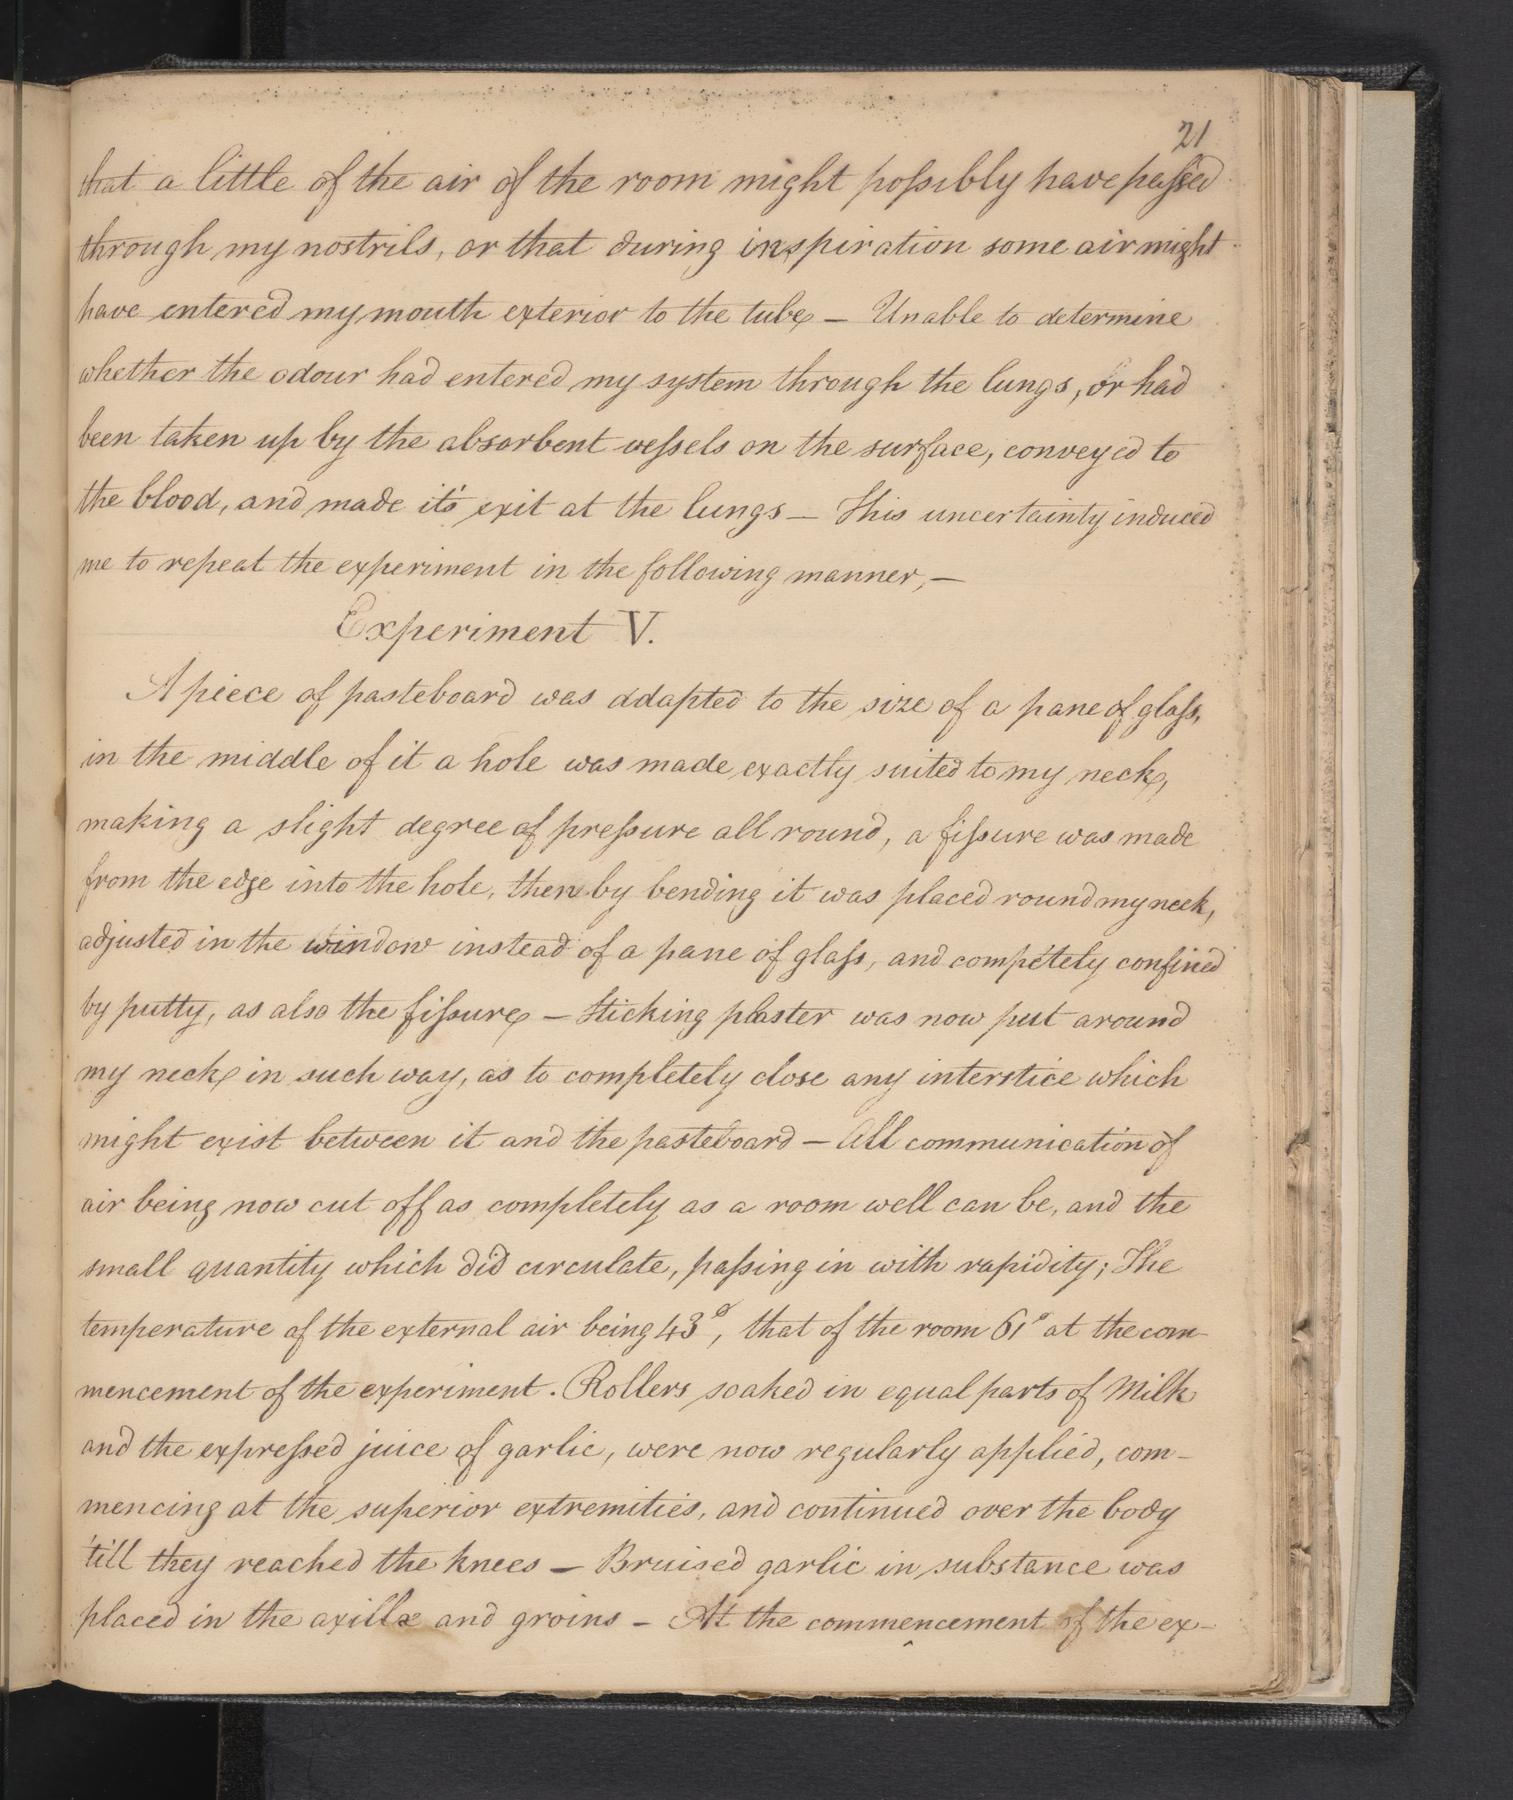 21
that a little of the air of the room might poſsibly have paſsed
through my nostrils, or that during inspiration some air might
have entered my mouth exterior to the tube — Unable to determine
whether the odour had entered my system through the lungs, or had
been taken up by the absorbent veſsels on the surface, conveyed to
the blood, and made it's exit at the lungs — This uncertainty induced
me to repeat the experiment in the following manner, —
Experiment V.
A piece of pasteboard was adapted to the size of a pane of glaſs,
in the middle of it a hole was made exactly suited to my neck,
making a slight degree of preſsure all round, a fiſsure was made
from the edge into the hole, then by bending it was placed round my neck,
adjusted in the window instead of a pane of glaſs, and competely confined
by putty, as also the fiſsure — Sticking plaster was now put around
my neck in such way, as to completely close any interstice which
might exist between it and the pasteboard — All communication of
air being now cut off as completely as a room well can be, and the
small quantity which did circulate, paſsing in with rapidity; The
temperature of the external air being 43°, that of the room 61° at the com-
mencement of the experiment. Rollers soaked in equal parts of Milk
and the expreſsed juice of garlic, were now regularly applied, com-
mencing at the superior extremities, and continued over the body
'till they reached the knees — Bruised garlic in substance was
placed in the axillæ and groins — At the commencement of the ex-